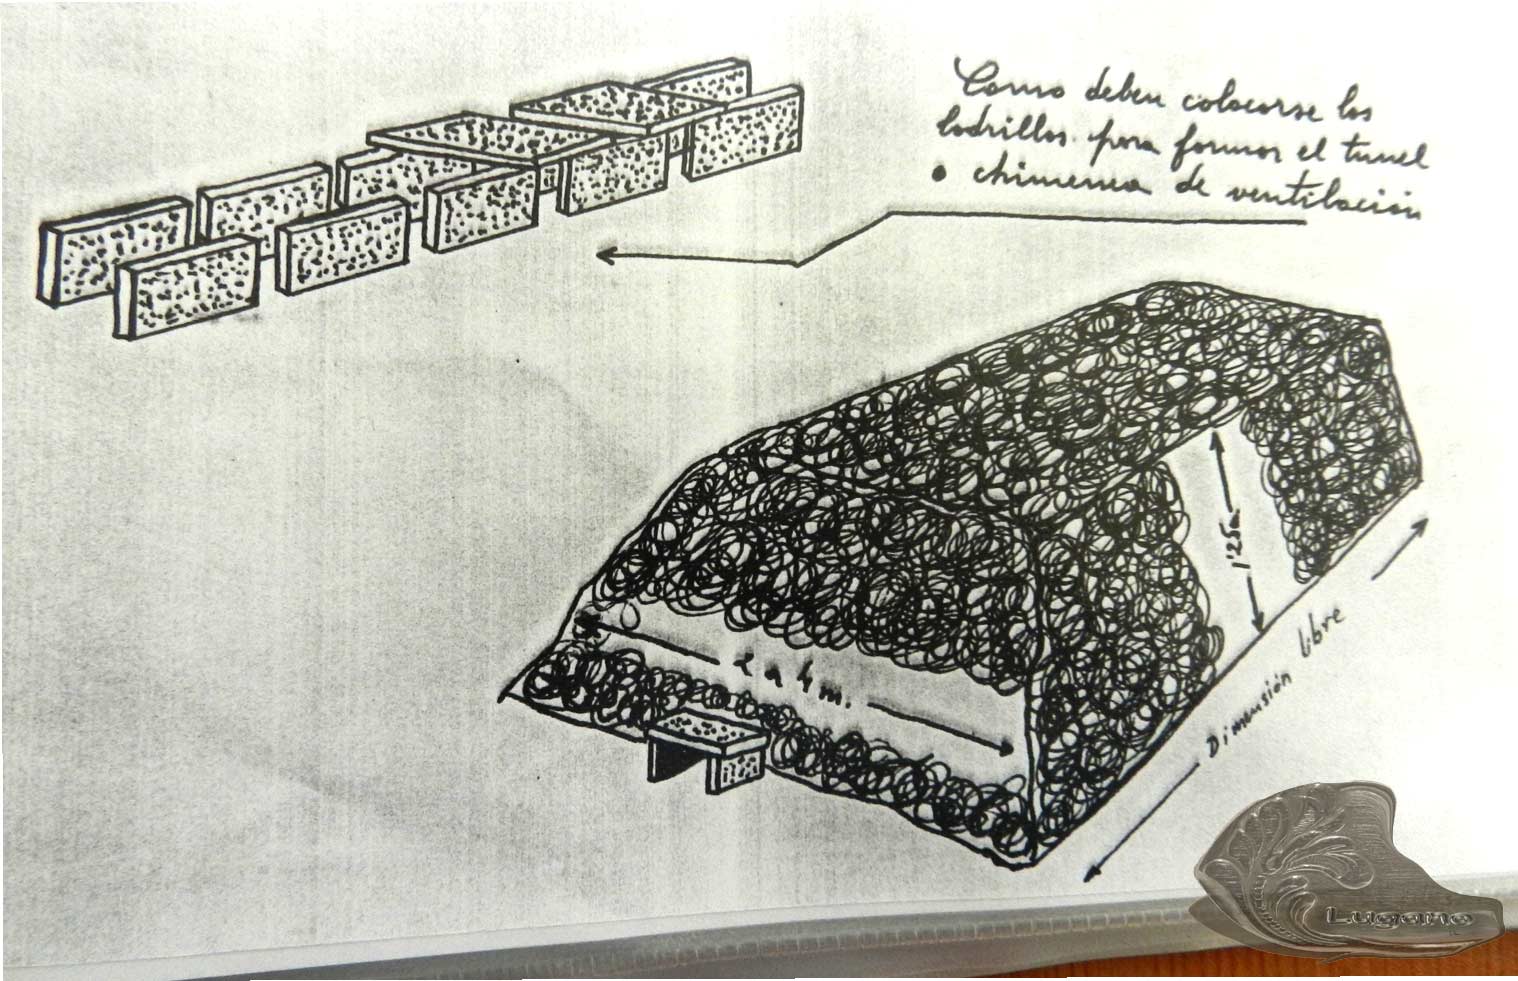 Como deben colocarse los
ladrillos para formar el tunel
o chimenea de ventilación
1'25m
2 a 4 m.
Dimensión libre
Lugano